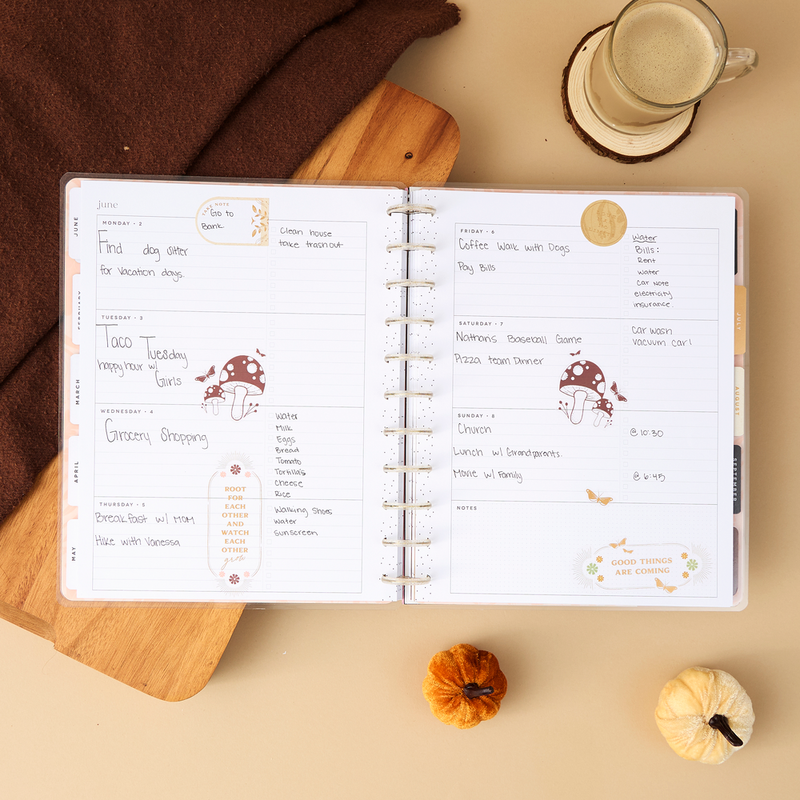 june
MONDAY • 2
TAKE NOTE
Go to
Bank
Find dog sitter
for vacation days.
Clean house
take trash out
TUESDAY • 3
Taco Tuesday
happy hour w/
Girls
WEDNESDAY • 4
Grocery Shopping
Water
Milk
Eggs
Bread
Tomato
Tortilla's
Cheese
Rice
THURSDAY • 5
Breakfast w/ MOM
Hike with Vanessa
Walking Shoes
Water
Sunscreen
ROOT
FOR
EACH
OTHER
AND
WATCH
EACH
OTHER
grow
JUNE
FEBRUARY
MARCH
APRIL
MAY
FRIDAY • 6
Coffee Walk with Dogs
Pay Bills
Water
Bills:
Rent
Water
Car note
electricity
insurance.
SATURDAY • 7
Nathan's Baseball Game
Pizza team Dinner
Car wash
vacuum car!
SUNDAY • 8
Church
@ 10:30
Lunch w/ Grandparents.
Movie w/ Family
@ 6:45
NOTES
GOOD THINGS
ARE COMING
JULY
AUGUST
SEPTEMBER